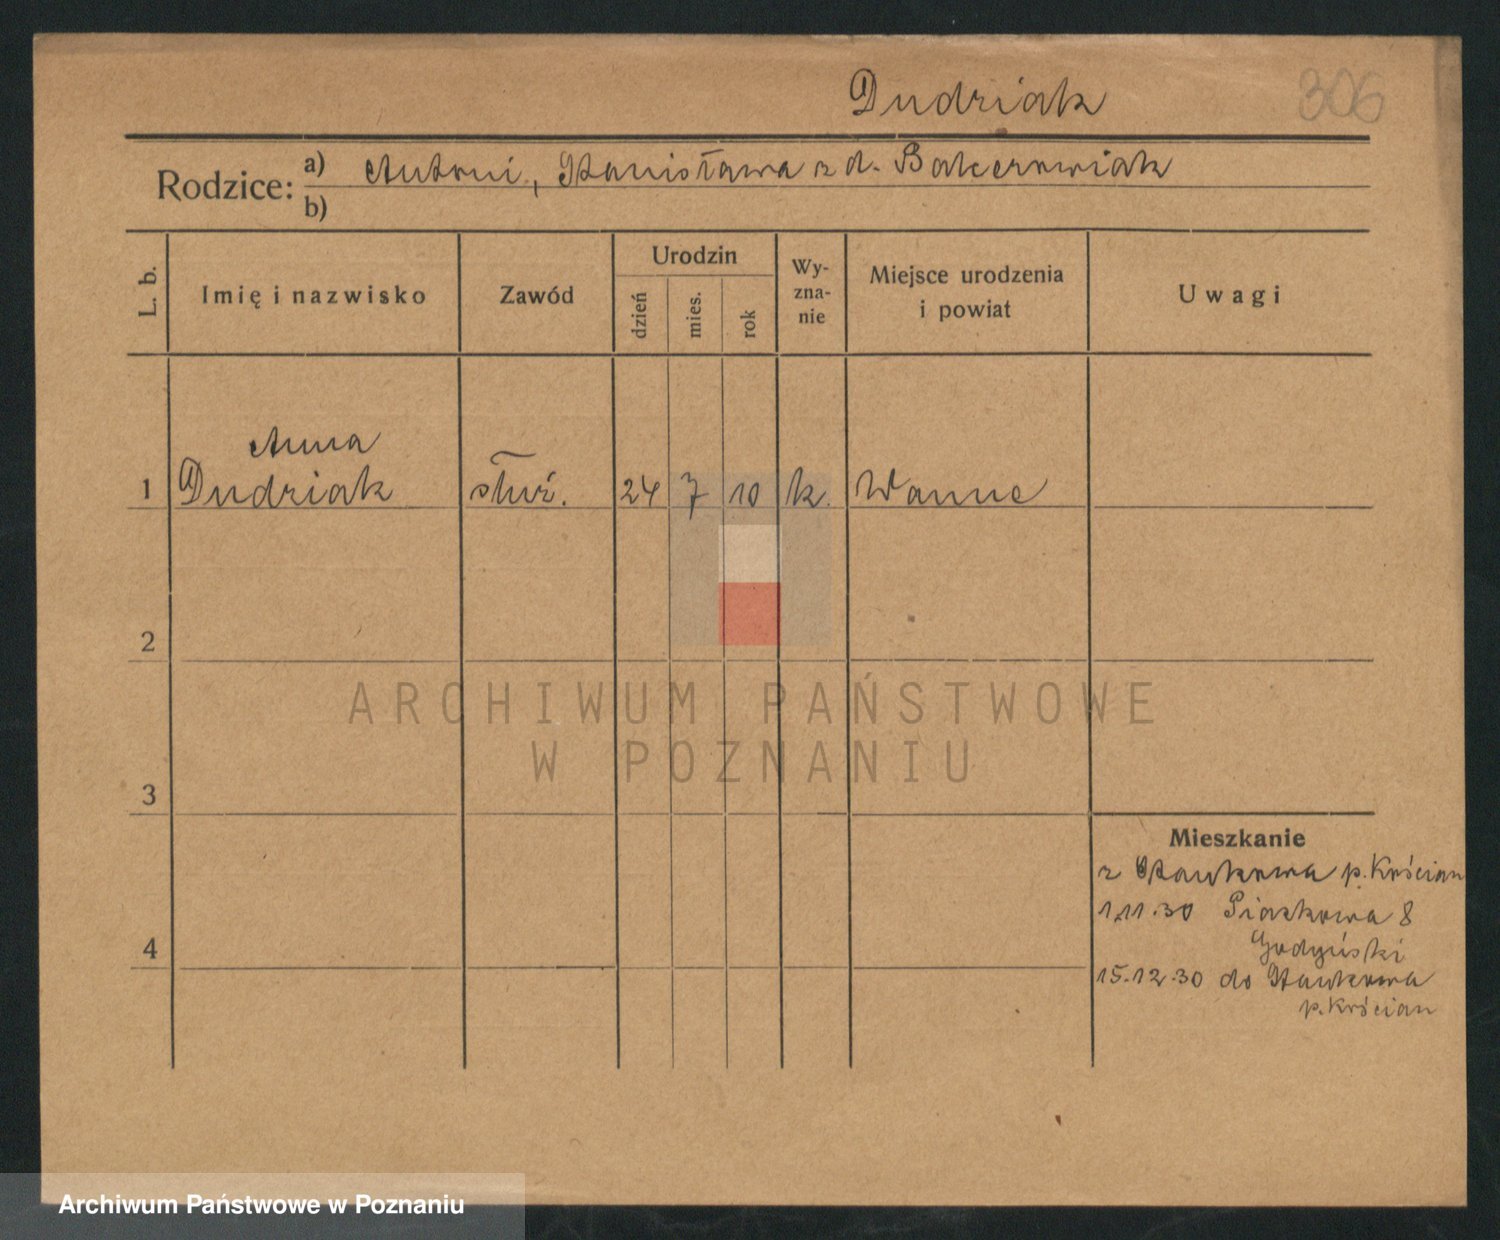 Dudziak
306
Rodzice: a) Antoni, Stanisława z d. Balcerowiak
b)
L. b.
Imię i nazwisko
Zawód
Urodzin
dzień
mies.
rok
Wy-
zna-
nie
Miejsce urodzenia
i powiat
Uwagi
Anna
1 Dudziak służ. 24 7 10 k. Wanne
2
ARCHIWUM PAŃSTWOWE
W POZNANIU
3
Mieszkanie
z Stankowa p. Kościan
1.11.30 Piaskowa 8
4
15.12.30 do Stankowa
p. Kościan
Archiwum Państwowe w Poznaniu